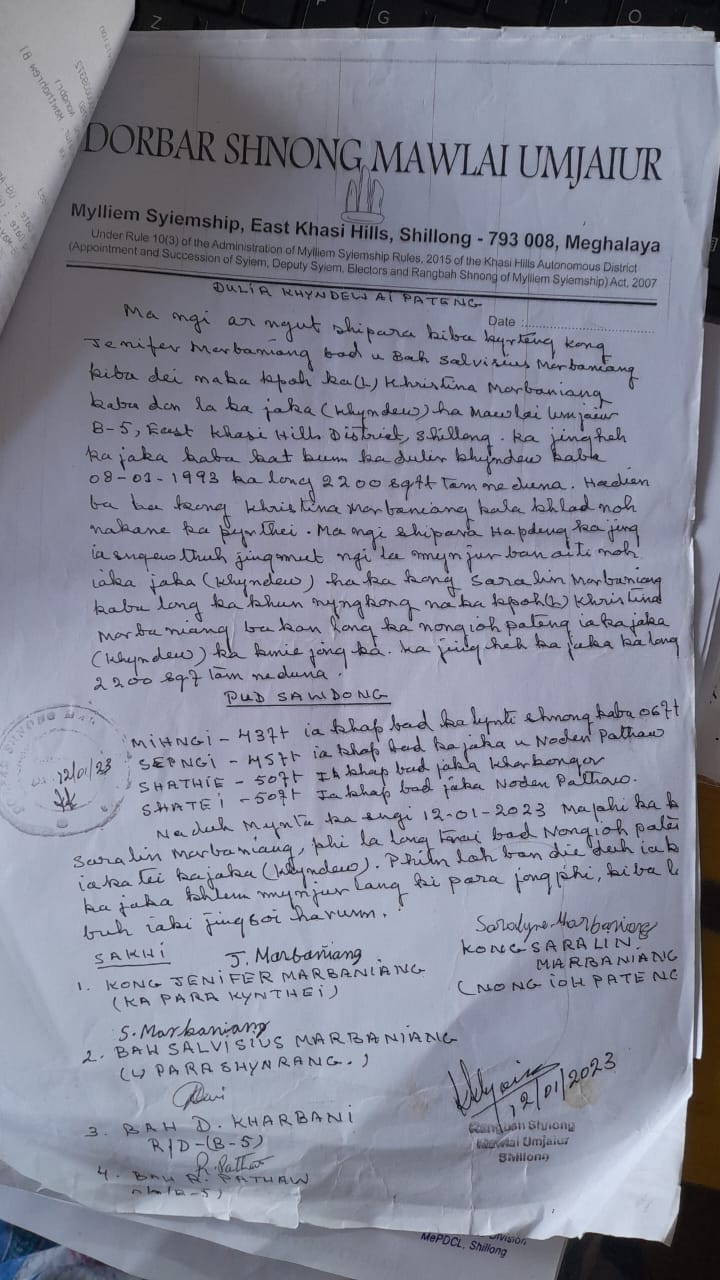 Z
G
O
DORBAR SHNONG MAWLAI UMJAIUR
Mylliem Syiemship, East Khasi Hills, Shillong - 793 008, Meghalaya
Under Rule 10(3) of the Administration of Mylliem Syiemship Rules, 2015 of the Khasi Hills Autonomous District
(Appointment and Succession of Syiem, Deputy Syiem, Electors and Rangbah Shnong of Mylliem Syiemship) Act, 2007
DULIR KHYNDEW AI PATENG
Date :
Ma ngi ar ngut shipara kiba kyrteng kong
Jenifer Marbaniang bad u Bah Salvisius Marbaniang
kiba dei naka kpoh ka(L) Khristina Marbaniang
kaba don la ka jaka (Khyndew) ha Mawlai Umjaiur
B-5, East Khasi Hills District, Shillong. Ka jingheh
ka jaka kaba kat kum ka dulir khyndew kaba
08-03-1993 ka long 2200 sqft tam ne duna. Hadien
ba ka kong Khristina Marbaniang kala khlad noh
nakane ka pyrthei. Ma ngi shipara Hapdeng ka jing
ia sngewthuh jingmut ngi la mynjur ban aiti noh
iaka jaka (Khyndew) ha ka kong Saralin Marbaniang
kaba long ka khun nyngkong na ka kpoh(L) Khristina
Marbaniang ba kan long ka nongioh pateng iaka jaka
(Khyndew) ka kmie jong ka. Ka jing heh ka jaka ka long
2200 sqft tam ne duna.
PUD SAWDONG
MIHNGI - 43ft ia khap bad ka lynti shnong kaba 06ft
SEPNGI - 45ft ia khap bad ka jaka u Noden Pathaw
SHATHIE - 50ft Ia khap bad jaka Kharkongor
SHATEI - 50ft Ia khap bad jaka Noden Pathaw.
12/01/23
Naduh mynta ka sngi 12-01-2023 Ma phi ka k
Saralin Marbaniang, phi la long Trai bad Nongioh pate
iaka tei ka jaka (Khyndew). Phim lah ban die duh iak
ka jaka khlem mynjur lang ki para jong phi, kiba l
buh iaki jingsoi harum.
SAKHI
J. Marbaniang
1. KONG JENIFER MARBANIANG
(KA PARA KYNTHEI)
Saralyne Marbaniang
KONG SARALIN
MARBANIANG
(NONG IOH PATENG
S. Marbaniang
2. BAH SALVISIUS MARBANIANG
(U PARA SHYNRANG.)
3. BAH D. KHARBANI
R/D-(B-5)
R. Pathaw
4. BAH R. PATHAW
12/01/2023
Rangbah Shnong
Mawlai Umjaiur
Shillong
MePDCL, Shillong